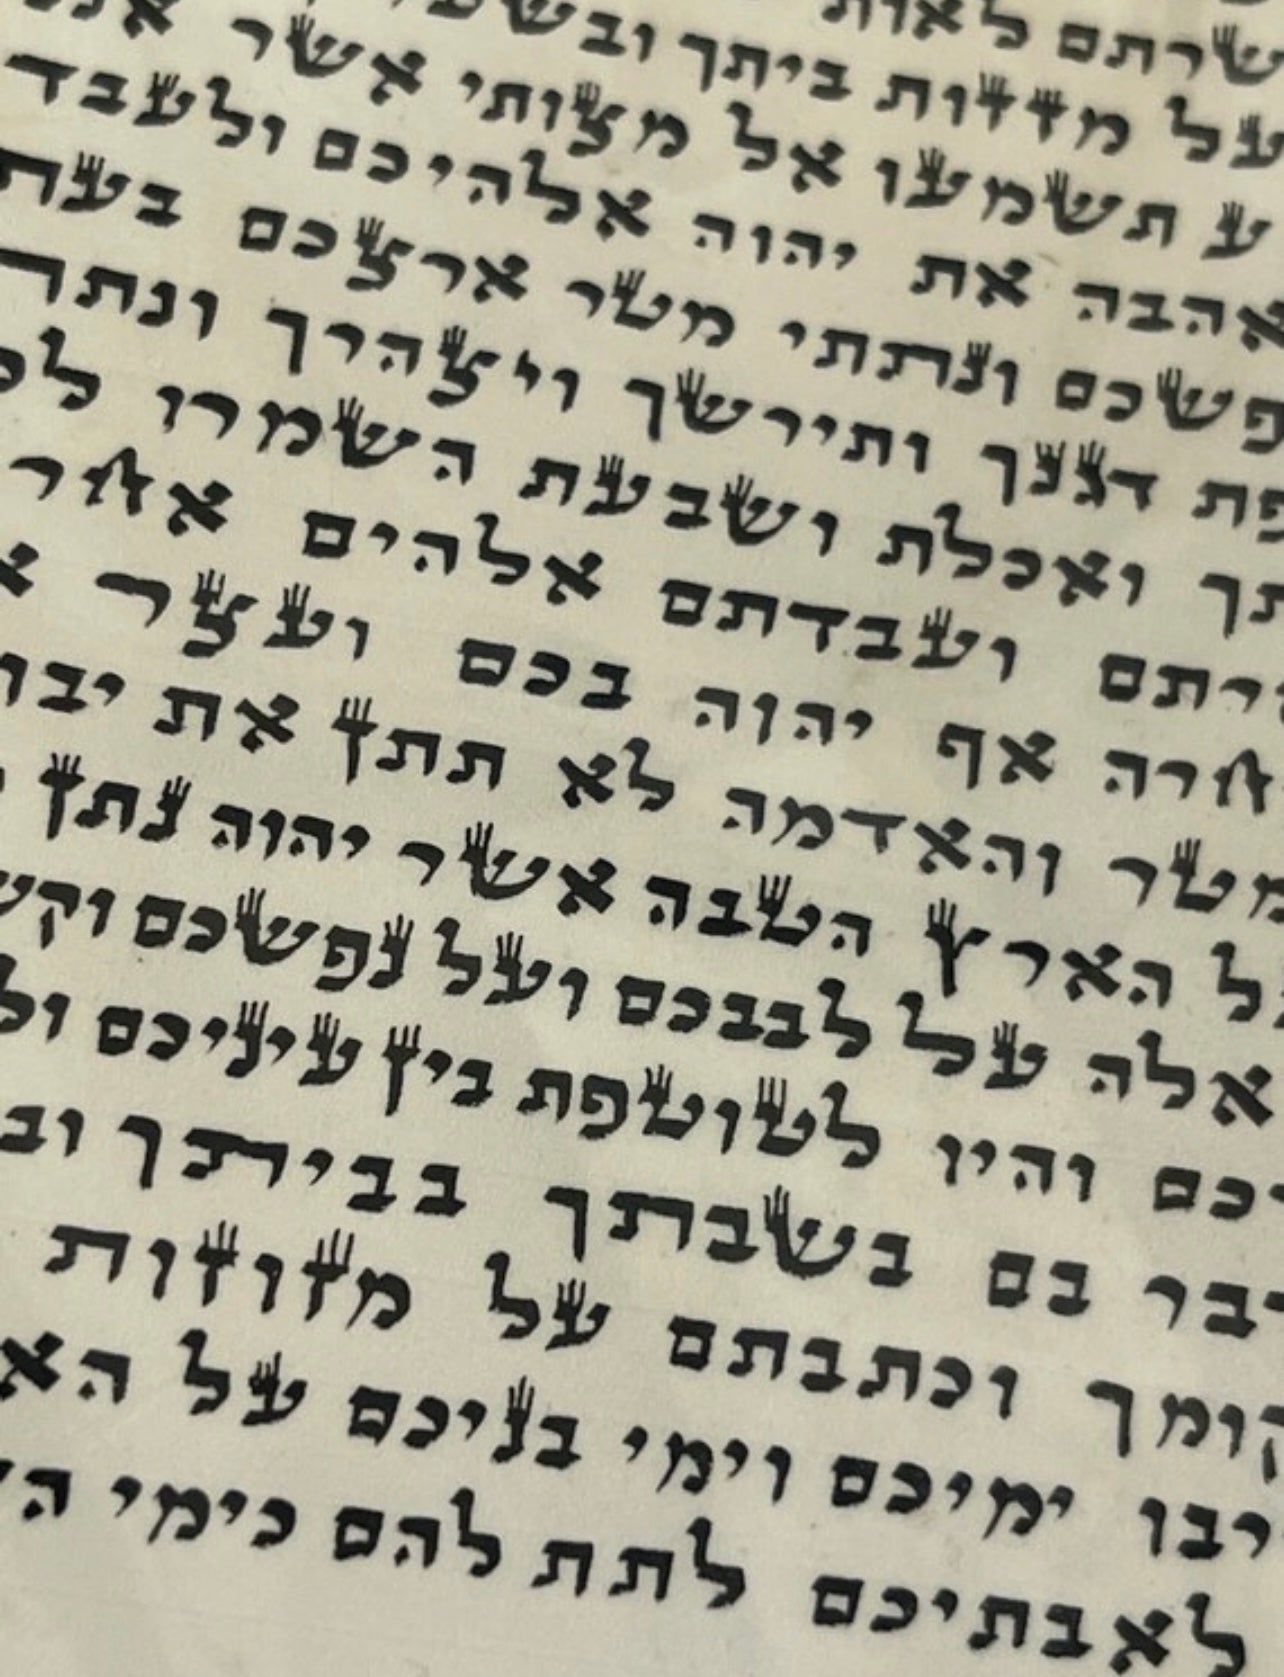 שרתם לאות
על מזזות ביתך ובשע
ע תשמעו אל מצותי אשר אנכ
אהבה את יהוה אלהיכם ולעבד
פשכם ונתתי מטר ארצכם בעת
פת דגנך ותירשך ויצהרך ונתת
תך ואכלת ושבעת השמרו לכ
רתם ועבדתם אלהים אחר
חרה אף יהוה בכם ועצר א
מטר והאדמה לא תתן את יבו
ל הארץ הטבה אשר יהוה נתן
אלה על לבבכם ועל נפשכם וקש
דכם והיו לטוטפת בין עיניכם ול
דבר בם בשבתך בביתך וב
קומך וכתבתם על מזוזות
ירבו ימיכם וימי בניכם על הא
לאבתיכם לתת להם כימי הש